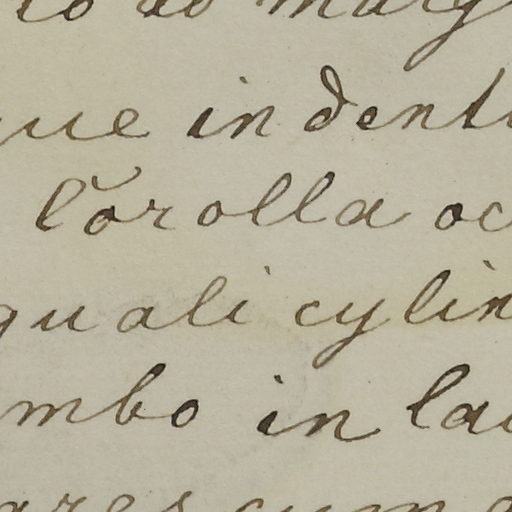 ue in dent
Corolla oc
quali cylin
mbo in la